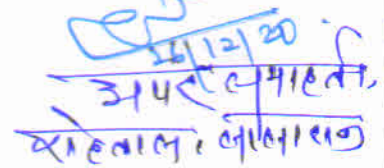 26/12/20
अपर समाहर्ता,
रोहतास, सासाराम